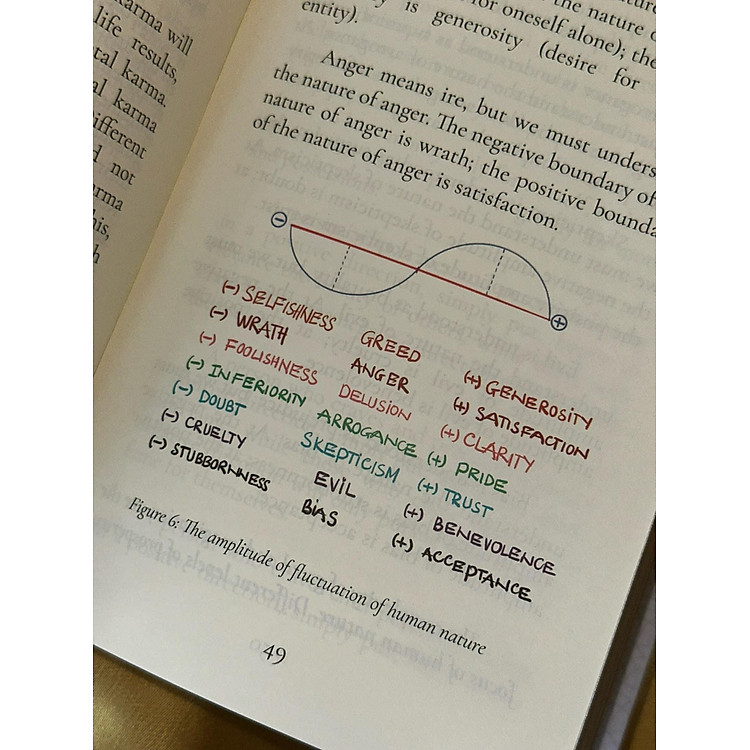 karma will
life results,
karma.
karma
different
not
for oneself alone); the
is generosity (desire for
entity).
Anger means ire, but we must
the nature of anger. The negative boundary of
nature of anger is wrath; the positive
of the nature of anger is satisfaction.
(-) SELFISHNESS GREED (+) GENEROSITY
(-) WRATH ANGER (+) SATISFACTION
(-) FOOLISHNESS DELUSION (+) CLARITY
(-) INFERIORITY ARROGANCE (+) PRIDE
(-) DOUBT SKEPTICISM (+) TRUST
(-) CRUELTY EVIL (+) BENEVOLENCE
(-) STUBBORNNESS BIAS (+) ACCEPTANCE
Figure 6: The amplitude of fluctuation of human nature
49